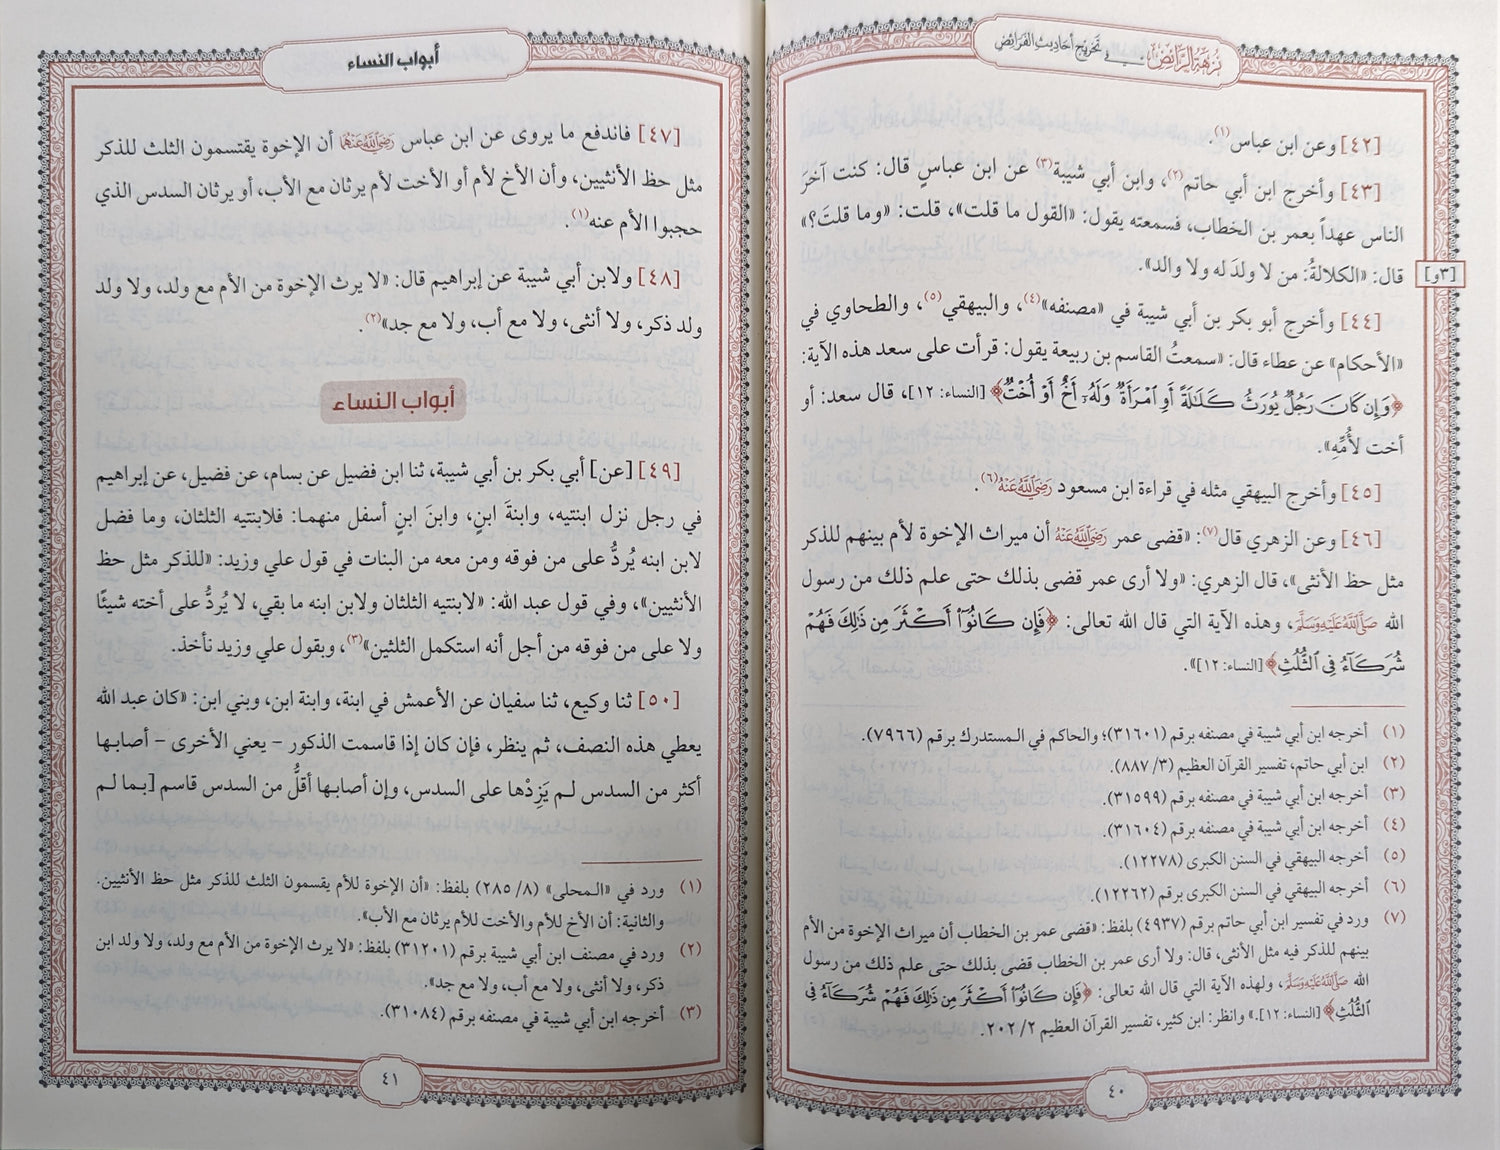 نزهة الرائض في تخريج أحاديث الفرائض
[٤٢] وعن ابن عباس(١).
[٤٣] وأخرج ابن أبي حاتم(٢)، وابن أبي شيبة(٣) عن ابن عباسٍ قال: كنت آخرَ
الناس عهداً بعمر بن الخطاب، فسمعته يقول: «القول ما قلت»، قلت: «وما قلتَ؟»
قال: «الكلالةُ: من لا ولدَ له ولا والد».
[٣و]
[٤٤] وأخرج أبو بكر بن أبي شيبة في «مصنفه»(٤)، والبيهقي(٥)، والطحاوي في
«الأحكام» عن عطاء قال: «سمعتُ القاسم بن ربيعة يقول: قرأت على سعد هذه الآية:
﴿وَإِن كَانَ رَجُلٌ يُورَثُ كَلَٰلَةً أَوِ ٱمْرَأَةٌ وَلَهُۥٓ أَخٌ أَوْ أُخْتٌ﴾ [النساء: ١٢]، قال سعد: أو
أخت لأُمِّهِ».
[٤٥] وأخرج البيهقي مثله في قراءة ابن مسعود رَضِيَ اللَّهُ عَنْهُ(٦).
[٤٦] وعن الزهري قال(٧): «قضى عمر رَضِيَ اللَّهُ عَنْهُ أن ميراث الإخوة لأم بينهم للذكر
مثل حظ الأنثى»، قال الزهري: «ولا أرى عمر قضى بذلك حتى علم ذلك من رسول
الله صَلَّى اللَّهُ عَلَيْهِ وَسَلَّمَ، وهذه الآية التي قال الله تعالى: ﴿فَإِن كَانُوٓا۟ أَكْثَرَ مِن ذَٰلِكَ فَهُمْ
شُرَكَآءُ فِى ٱلثُّلُثِ﴾ [النساء: ١٢]».
(١) أخرجه ابن أبي شيبة في مصنفه برقم (٣١٦٠١)؛ والحاكم في المستدرك برقم (٧٩٦٦).
(٢) ابن أبي حاتم، تفسير القرآن العظيم (٣/ ٨٨٧).
(٣) أخرجه ابن أبي شيبة في مصنفه برقم (٣١٥٩٩).
(٤) أخرجه ابن أبي شيبة في مصنفه برقم (٣١٦٠٤).
(٥) أخرجه البيهقي في السنن الكبرى (١٢٢٧٨).
(٦) أخرجه البيهقي في السنن الكبرى برقم (١٢٢٦٢).
(٧) ورد في تفسير ابن أبي حاتم برقم (٤٩٣٧) بلفظ: «قضى عمر بن الخطاب أن ميراث الإخوة من الأم
بينهم للذكر فيه مثل الأنثى، قال: ولا أرى عمر بن الخطاب قضى بذلك حتى علم ذلك من رسول
الله صَلَّى اللَّهُ عَلَيْهِ وَسَلَّمَ، ولهذه الآية التي قال الله تعالى: ﴿فَإِن كَانُوٓا۟ أَكْثَرَ مِن ذَٰلِكَ فَهُمْ شُرَكَآءُ فِى
ٱلثُّلُثِ﴾ [النساء: ١٢].» وانظر: ابن كثير، تفسير القرآن العظيم ٢/ ٢٠٢.
٤٠
أبواب النساء
[٤٧] فاندفع ما يروى عن ابن عباس رَضِيَ اللَّهُ عَنْهُمَا أن الإخوة يقتسمون الثلث للذكر
مثل حظ الأنثيين، وأن الأخ لأم أو الأخت لأم يرثان مع الأب، أو يرثان السدس الذي
حجبوا الأم عنه(١).
[٤٨] ولابن أبي شيبة عن إبراهيم قال: «لا يرث الإخوة من الأم مع ولد، ولا ولد
ولد ذكر، ولا أنثى، ولا مع أب، ولا مع جد»(٢).
أبواب النساء
[٤٩] [عن] أبي بكر بن أبي شيبة، ثنا ابن فضيل عن بسام، عن فضيل، عن إبراهيم
في رجل نزل ابنتيه، وابنةَ ابنٍ، وابنَ ابنٍ أسفل منهما: فلابنتيه الثلثان، وما فضل
لابن ابنه يُردُّ على من فوقه ومن معه من البنات في قول علي وزيد: «للذكر مثل حظ
الأنثيين»، وفي قول عبد الله: «لابنتيه الثلثان ولابن ابنه ما بقي، لا يُردُّ على أخته شيئًا
ولا على من فوقه من أجل أنه استكمل الثلثين»(٣)، وبقول علي وزيد نأخذ.
[٥٠] ثنا وكيع، ثنا سفيان عن الأعمش في ابنة، وابنة ابن، وبني ابن: «كان عبد الله
يعطي هذه النصف، ثم ينظر، فإن كان إذا قاسمت الذكور – يعني الأخرى – أصابها
أكثر من السدس لم يَزِدْها على السدس، وإن أصابها أقلُّ من السدس قاسم [بما لم
(١) ورد في «المحلى» (٨/ ٢٨٥) بلفظ: «أن الإخوة للأم يقسمون الثلث للذكر مثل حظ الأنثيين.
والثانية: أن الأخ للأم والأخت للأم يرثان مع الأب».
(٢) ورد في مصنف ابن أبي شيبة برقم (٣١٢٠١) بلفظ: «لا يرث الإخوة من الأم مع ولد، ولا ولد ابن
ذكر، ولا أنثى، ولا مع أب، ولا مع جد».
(٣) أخرجه ابن أبي شيبة في مصنفه برقم (٣١٠٨٤).
٤١